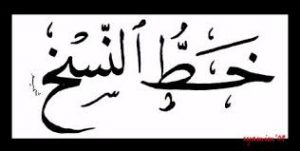 خَطُّ ٱلنَّسْخِ